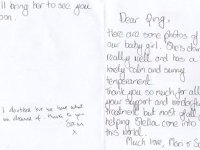 ll bring her to see you
oon.
I doubt we have what
we dreamed of. thanks to you
x
Dear Qing,
Here are some photos of
our baby girl. She's doing
really well and has a
lovely calm and sunny
temperament.
Thank you so much, for all
your support and wonderful
treatment but most of all
helping Stella come into
this world.
Much love, Mari & S